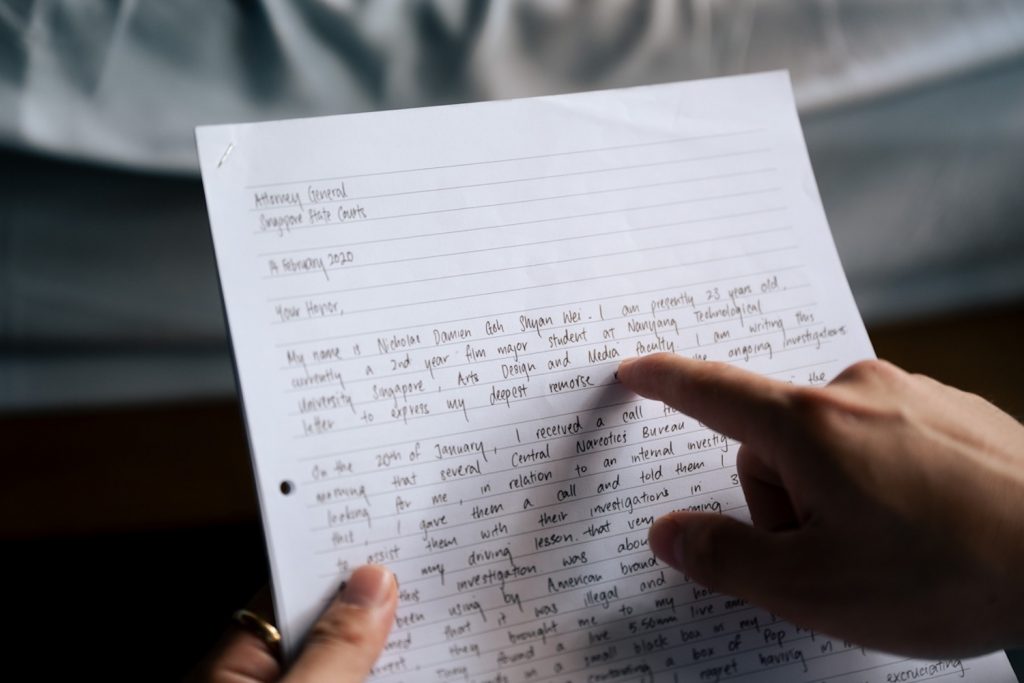 Attorney General
Singapore State Courts
14 February 2020
Your Honor,
My name is Nicholas Damien Goh Shyan Wei. I am presently 23 years old.
currently a 2nd year film major student at Nanyang Technological
University Singapore, Arts Design and Media faculty I am writing this
letter to express my deepest remorse ongoing investigations
On the 20th of January, I received a call the
morning that several Central Narcotics Bureau
looking for me, in relation to an internal
this, I gave them a call and told them I
to assist them with their investigations in 3
my driving lesson. that very
investigation was
been using by American brand
that it was illegal and
they brought me to my
They found a live 5.56mm live
in a small black box in my
containing a box of Pop
I regret having in my
excruciating